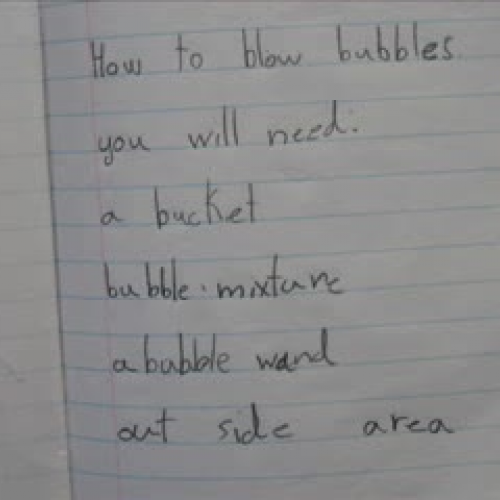 How to blow bubbles
you will need:
a bucket
bubble mixture
a bubble wand
out side area